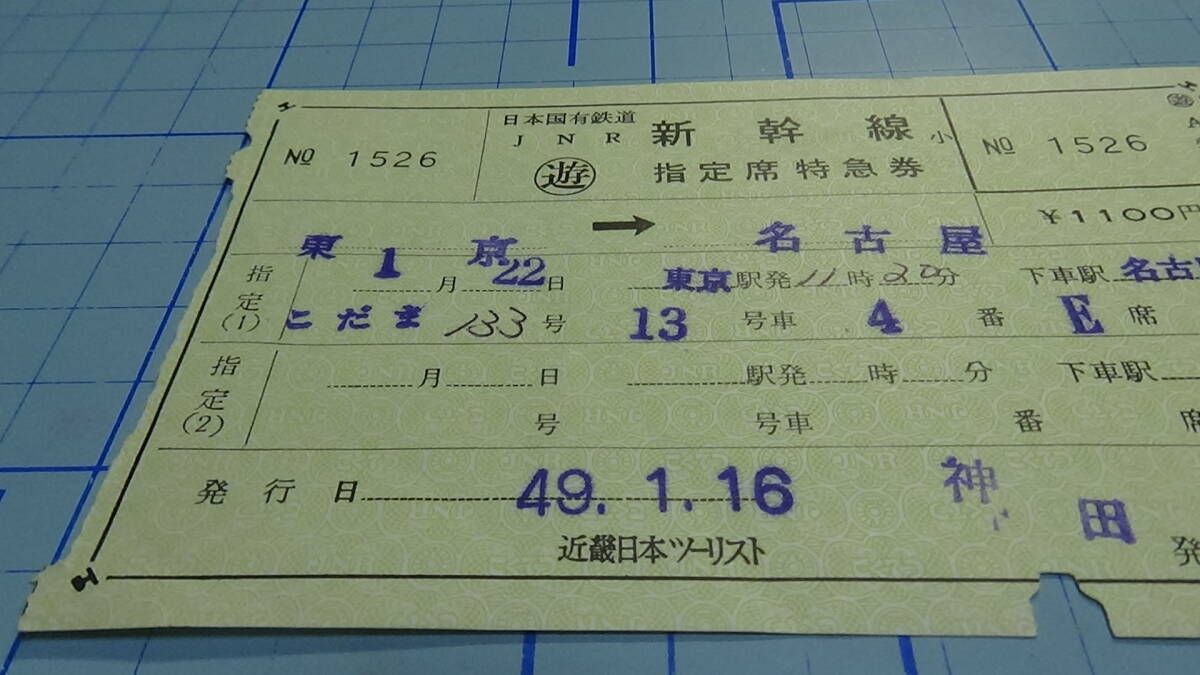 № 1526
日本国有鉄道
JNR
遊
新幹線
指定席特急券
小
№ 1526
東京 → 名古屋
¥1100円
指定(1) 1月22日 東京駅発11時 分 下車駅 名古
こだま 133号 13号車 4番 E席
指定(2) 月 日 駅発 時 分 下車駅
号 号車 番 席
発行日 49.1.16 神田 発
近畿日本ツーリスト